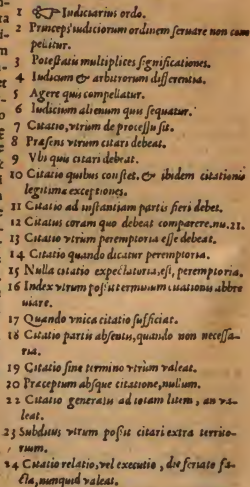 1 ☞ Iudiciarius ordo.
2 Princeps iudiciorum ordinem seruare non com
pellitur.
3 Potestatis multiplices significationes.
4 Iudicum & arbitrorum differentia.
5 Agere quis compellatur.
6 Iudicium alienum quis sequatur.
7 Citatio, vtrum de processu sit.
8 Præsens vtrum citari debeat.
9 Vbi quis citari debeat.
10 Citatio quibus constet, & ibidem citationis
legitima exceptiones.
11 Citatio ad instantiam partis fieri debet.
12 Citatus coram quo debeat comparere. nu. 21.
13 Citatio vtrum peremptoria esse debeat.
14 Citatio quando dicatur peremptoria.
15 Nulla citatio expectatoria, est, peremptoria.
16 Iudex vtrum possit terminum citationis abbre
uiare.
17 Quando vnica citatio sufficiat.
18 Citatio partis absentis, quando non necessa-
ria.
19 Citatio sine termino vtrum valeat.
20 Præceptum absque citatione, nullum.
22 Citatio generalis ad totam litem, an va-
leat.
23 Subditus vtrum possit citari extra territo-
rium.
24 Citatio relatio, vel executio, die feriato fa-
cta, nunquid valeat.